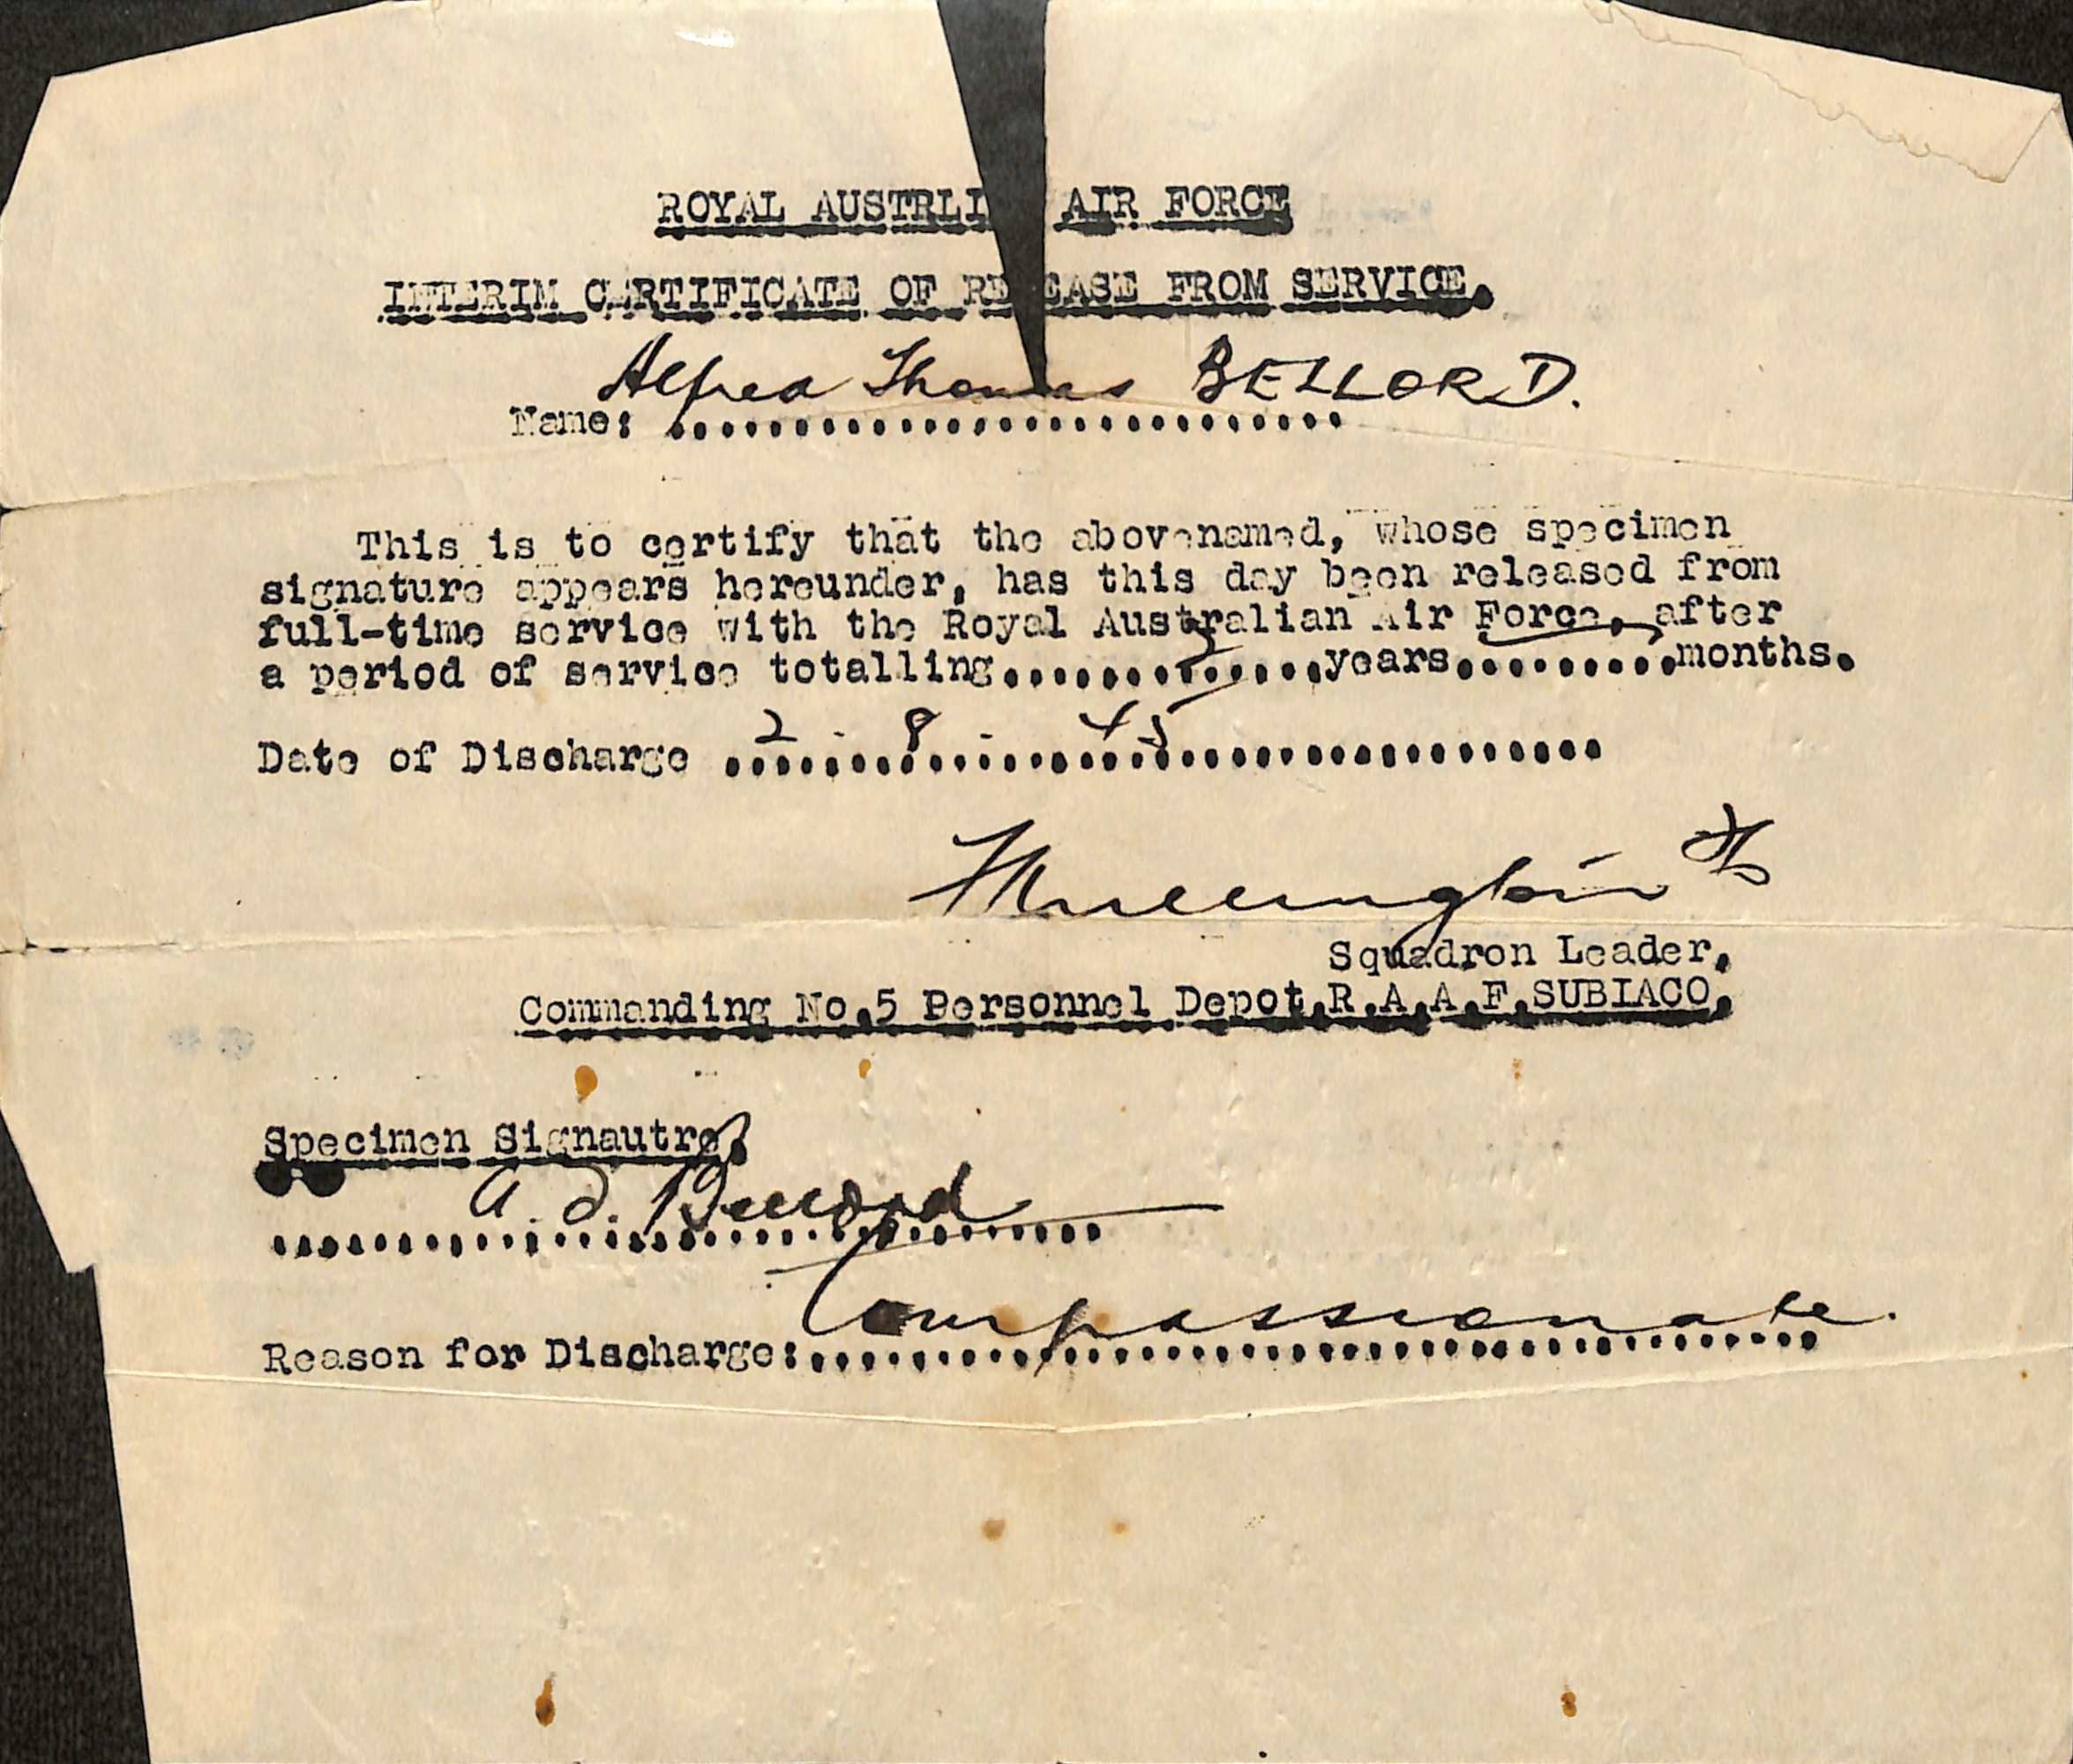 ROYAL AUSTRLI AIR FORCE
INTERIM CERTIFICATE OF RELEASE FROM SERVICE.
Name: Alfred Thomas BELLORD.
This is to certify that the abovenamed, whose specimen
signature appears hereunder, has this day been released from
full-time service with the Royal Australian Air Force, after
a period of service totalling..............years.........months.
Date of Discharge 2 - 8 - 45
Squadron Leader,
Commanding No.5 Personnel Depot,R.A.A.F.SUBIACO.
Specimen Signautre.
A. T. Bellord
Reason for Discharge: Compassionate.